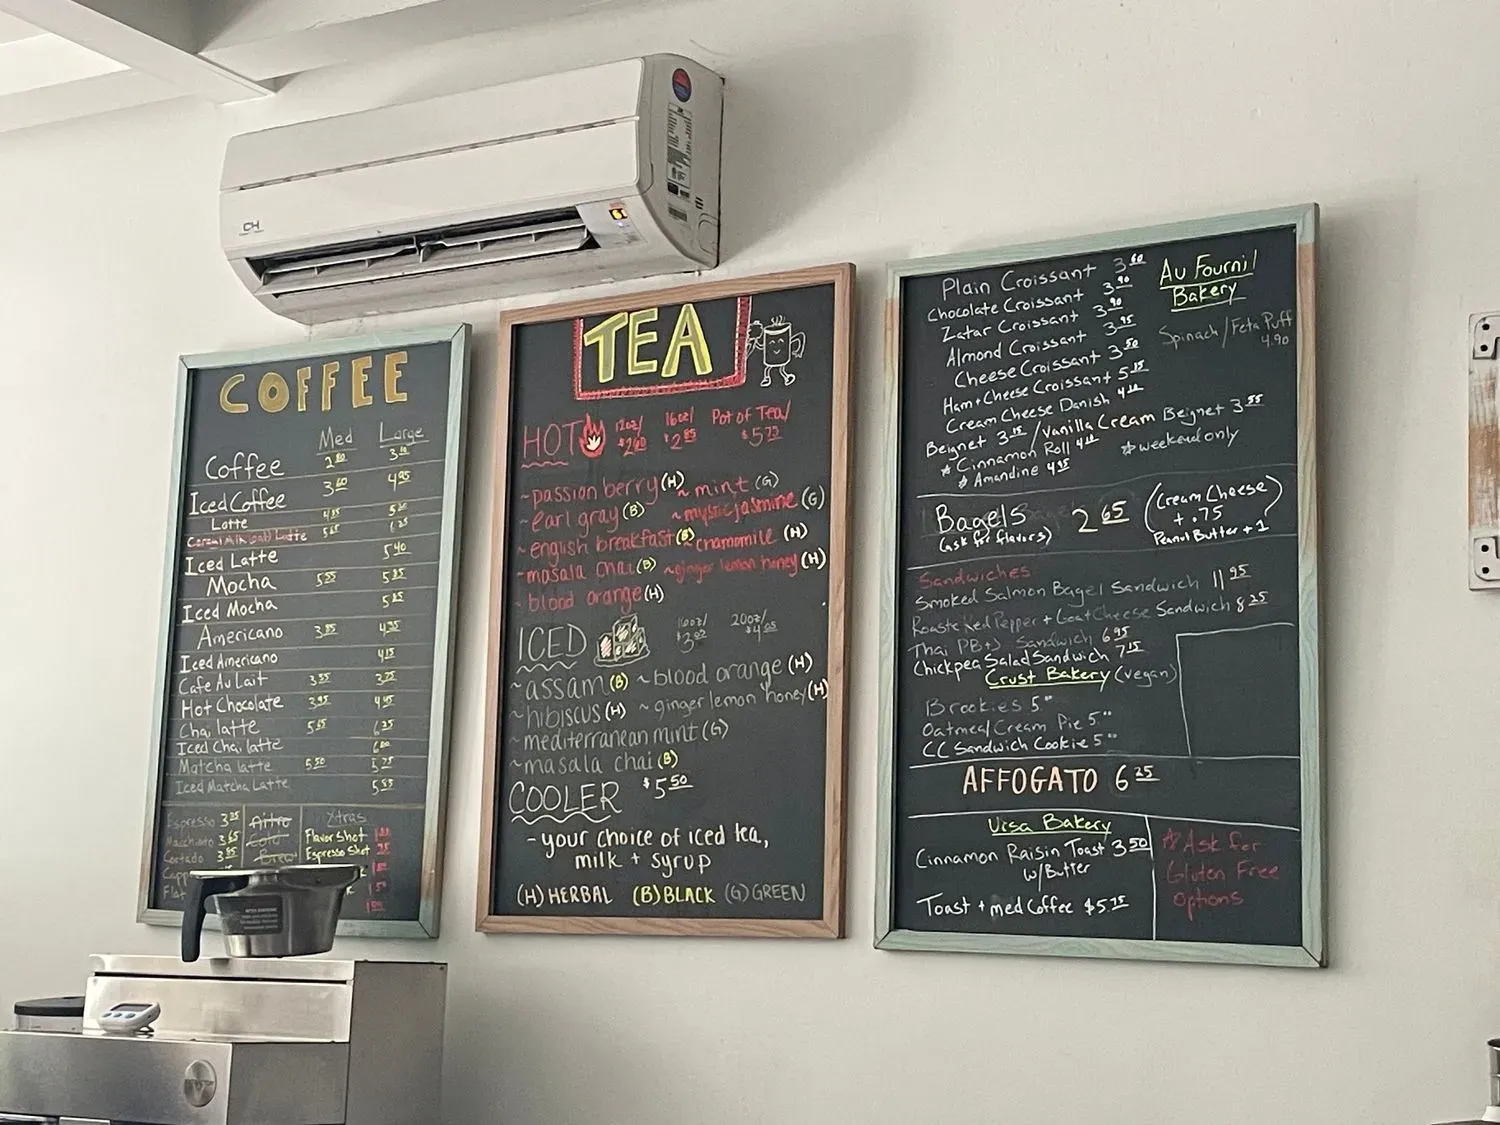 CH
61
COFFEE
Med Large
Coffee 2.80 3.10
Iced Coffee 3.60 4.25
Latte 4.85 5.20
Latte 5.65
Iced Latte 5.40
Mocha 5.55 5.85
Iced Mocha 5.85
Americano 3.85 4.35
Iced Americano 4.15
Cafe Au Lait 3.35 3.75
Hot Chocolate 3.95 4.45
Chai latte 5.65 6.25
Iced Chai latte 6.00
Matcha latte 5.50 5.75
Iced Matcha Latte 5.95
Espresso 3.25
Macchiato 3.65
Cortado 3.85
Nitro
Cold
Brew
Xtras
Flavor Shot
Espresso Shot
TEA
HOT 12oz/ $2.60 16oz/ $2.85 Pot of Tea/ $5.75
~passion berry (H) ~mint (G)
~earl gray (B) ~mystic jasmine (G)
~english breakfast (B) ~chamomile (H)
~masala chai (B) ~ginger lemon honey (H)
~blood orange (H)
ICED 16oz/ 20oz/
~assam (B) ~blood orange (H)
~hibiscus (H) ~ginger lemon honey (H)
~mediterranean mint (G)
~masala chai (B)
COOLER $5.50
- your choice of iced tea,
milk + syrup
(H) HERBAL (B) BLACK (G) GREEN
Au Fournil
Bakery
Spinach/Feta Puff
4.90
Plain Croissant 3.60
Chocolate Croissant 3.90
Zatar Croissant 3.90
Almond Croissant 3.95
Cheese Croissant 3.50
Ham+Cheese Croissant 5.15
Cream Cheese Danish
Beignet 3.15 / Vanilla Cream Beignet 3.55
* Cinnamon Roll
* Amandine 4.95
* weekend only
Bagels 2.65
(ask for flavors)
(Cream Cheese
+ .75
Peanut Butter + 1)
Sandwiches
Smoked Salmon Bagel Sandwich 11.95
Roasted Red Pepper + Goat Cheese Sandwich 8.25
Thai PB+J Sandwich 6.95
Chickpea Salad Sandwich 7.15
Crust Bakery (vegan)
Brookies 5.00
Oatmeal Cream Pie 5.00
CC Sandwich Cookie 5.00
AFFOGATO 6.25
Ursa Bakery
Cinnamon Raisin Toast 3.50
w/Butter
Toast + med Coffee $5.75
* Ask for
Gluten Free
options